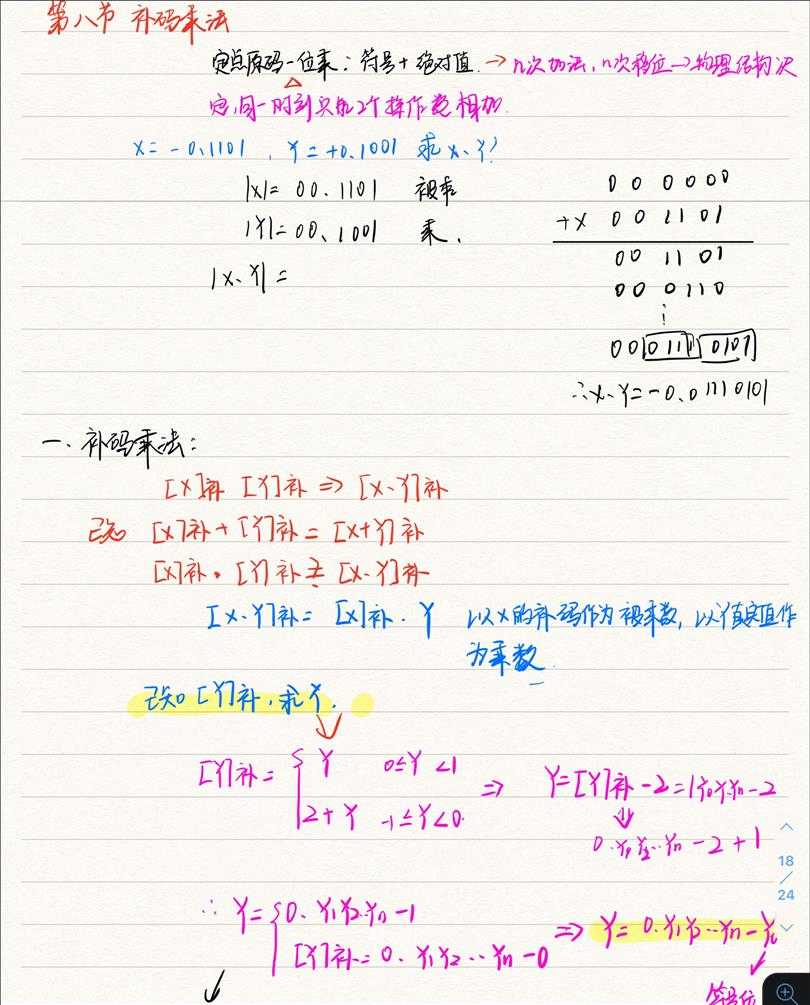 第八节 补码乘法
定点原码一位乘：符号+绝对值 → n次加法，n次移位 → 物理结构决
定，同一时刻只能2个操作数相加
X = -0.1101 , Y = +0.1001 求 X·Y?
|X| = 00.1101 被乘
|Y| = 00.1001 乘.
|X·Y| =
00 0000
+X 00 1101
00 1101
00 0110
⋮
00 0111 0101
∴X·Y = -0.01110101
一. 补码乘法：
[X]补 [Y]补 ⇒ [X·Y]补
已知 [X]补 + [Y]补 = [X+Y]补
[X]补 · [Y]补 ≠ [X·Y]补
[X·Y]补 = [X]补 · Y 以X的补码作为被乘数, 以Y值真值作
为乘数.
已知[Y]补, 求Y.
[Y]补 = { Y 0≤Y<1
2+Y -1≤Y<0
⇒ Y=[Y]补-2=
0.y₁y₂..yn -2+1
∴ Y = { 0.Y₁Y₂..Yn -1
[Y]补 = 0. Y₁Y₂..Yn -0
⇒ Y = 0.Y₁Y₂..Yn -
符号位
18
/
24